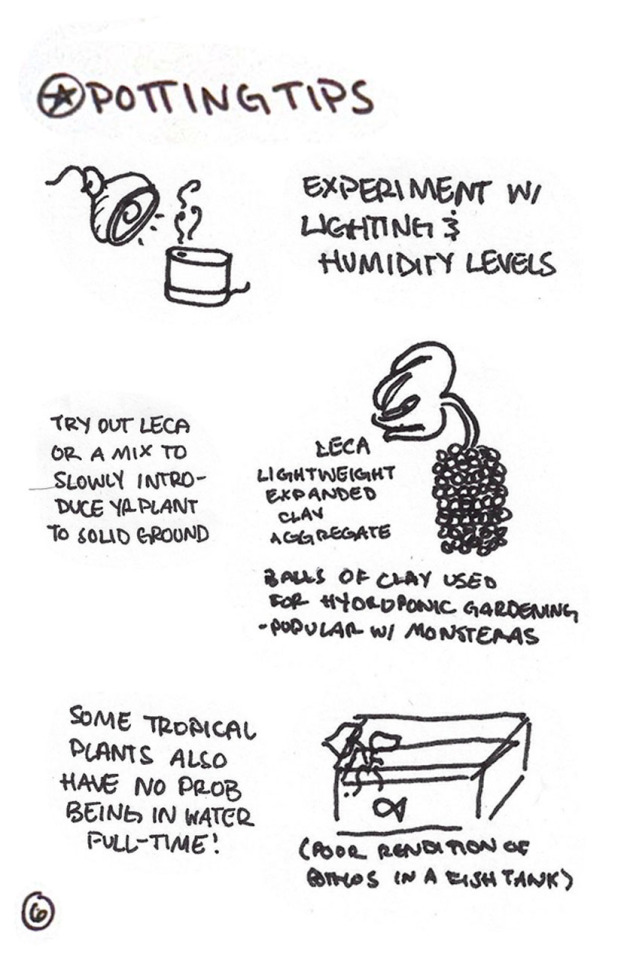 POTTING TIPS
EXPERIMENT W/
LIGHTING &
HUMIDITY LEVELS
TRY OUT LECA
OR A MIX TO
SLOWLY INTRO-
DUCE YR PLANT
TO SOLID GROUND
LECA
LIGHTWEIGHT
EXPANDED
CLAY
AGGREGATE
BALLS OF CLAY USED
FOR HYDROPONIC GARDENING
-POPULAR W/ MONSTERAS
SOME TROPICAL
PLANTS ALSO
HAVE NO PROB
BEING IN WATER
FULL-TIME!
(POOR RENDITION OF
POTHOS IN A FISH TANK)
6